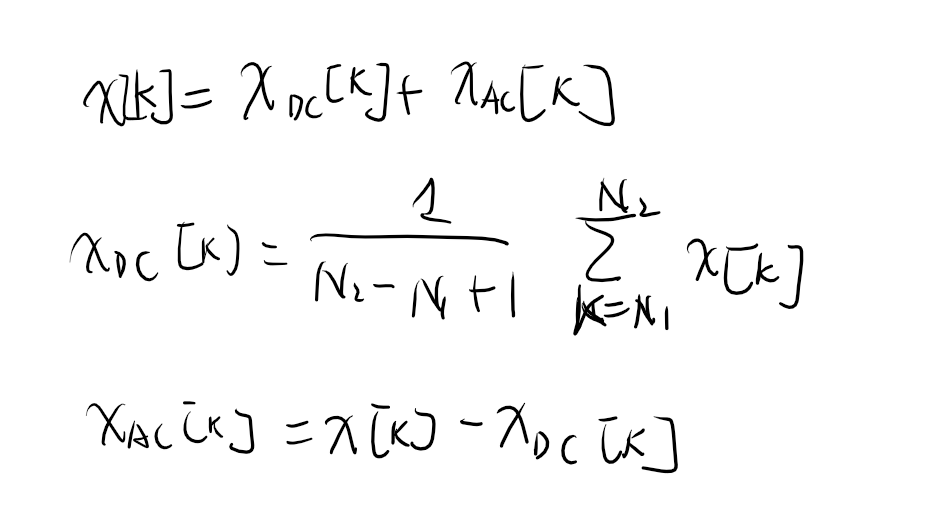 x[k] = x_DC[k] + x_AC[k]
x_DC[k) = \frac{1}{N_2 - N_1 + 1} \sum_{k=N_1}^{N_2} x[k]
x_AC[k] = x[k] - x_DC[k]